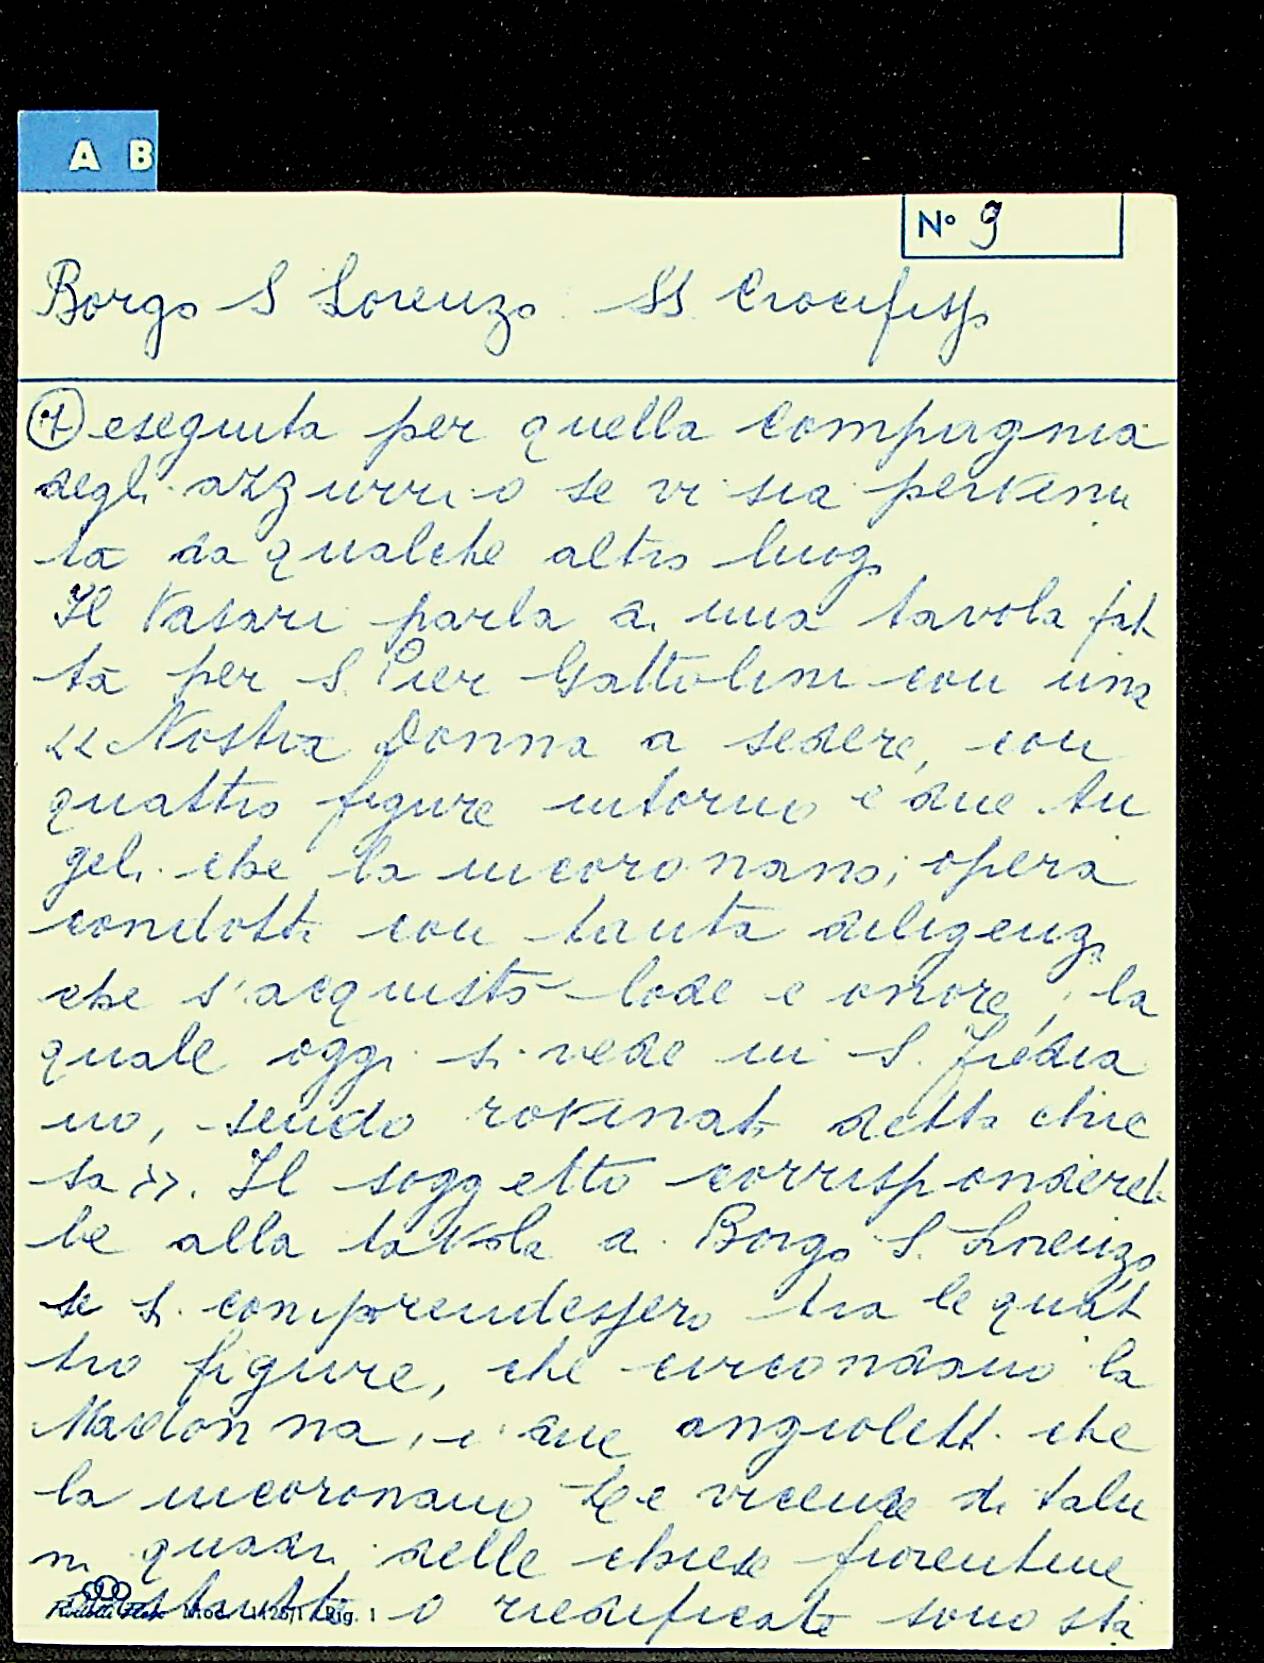 A B
N° 9
Borgo S Lorenzo SS Crocifisso
eseguita per quella compagnia
degli azzurri o se vi sia pervenu
ta da qualche altro luogo
Il Vasari parla di una tavola fat
ta per S. Pier Gattolini con una
<< Nostra Donna a sedere, con
quattro figure intorno e due An
geli che la incoronano; opera
condotta con tanta diligenza
che s'acquistò lode e onore; la
quale oggi si vede in S. Fredia
no, sendo rovinata detta chie
sa>>. Il soggetto corrispondereb
be alla tavola di Borgo S. Lorenzo
se si comprendessero tra le quat
tro figure, che circondano la
Madonna, i due angioletti che
la incoronano Le vicende di talu
ni quadri delle chiese fiorentine
o riedificate sono sta